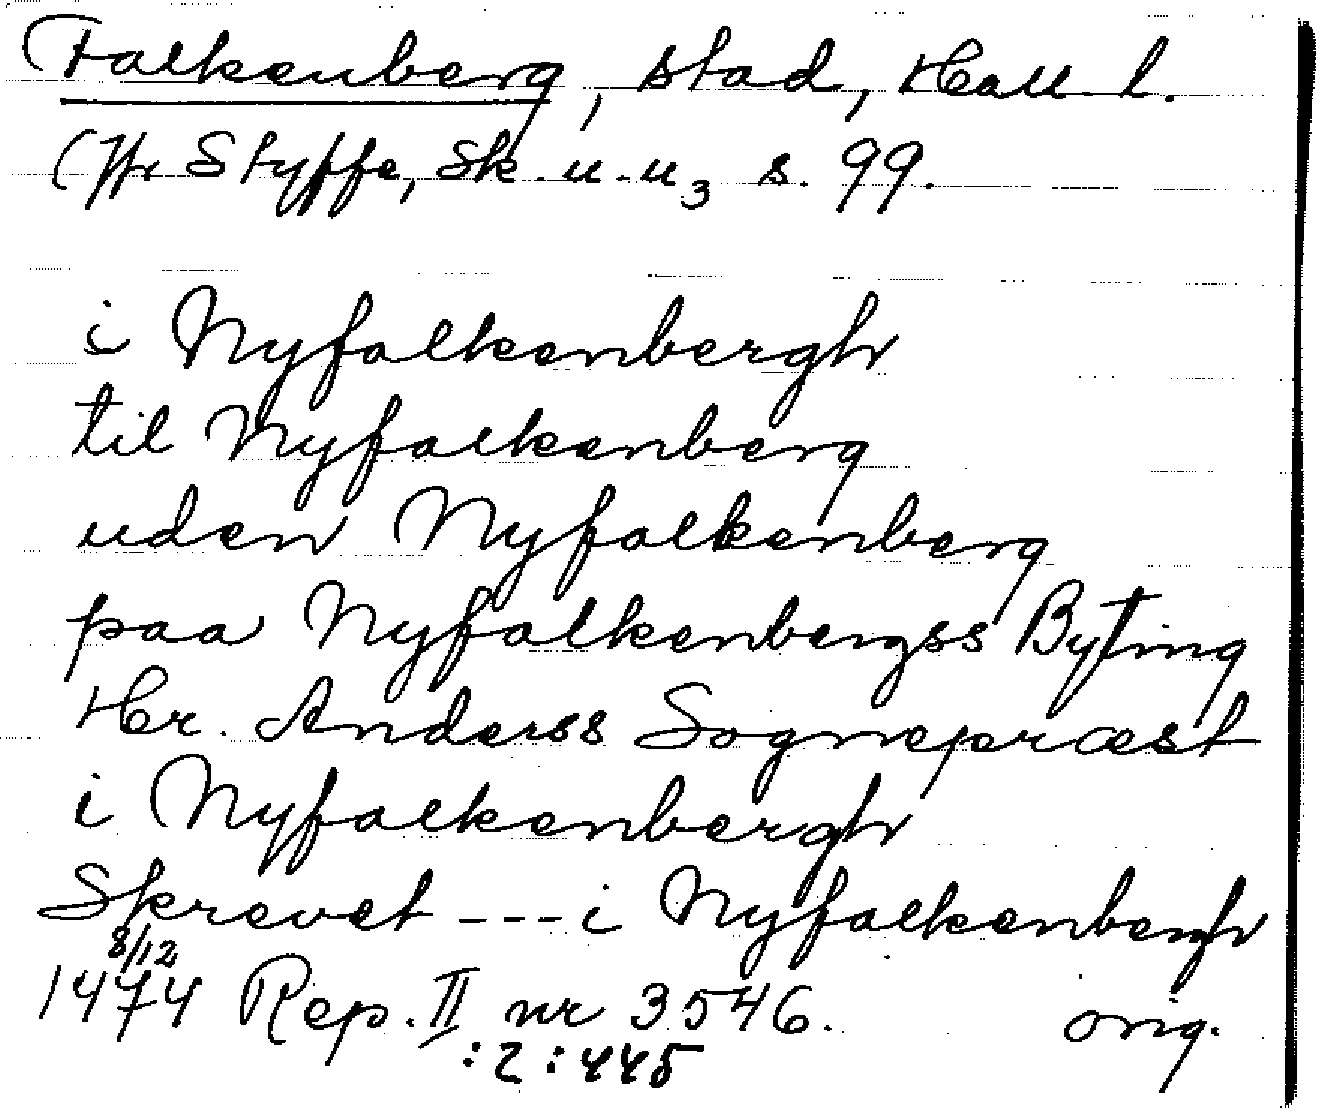 Falkenberg, stad, Hall l.
(Jfr Styffe, Sk. u. u₃ s. 99.
i Nyfalkenbergh
til Nyfalkenberg
uden Nyfalkenberg
paa Nyfalkenbergss ByTing
Hr. Anderss Sognepræst
i Nyfalkenbergh
Skrevet --- i Nyfalkenbergh
8/12
1474 Rep. II nr 3546. orig.
:2:445